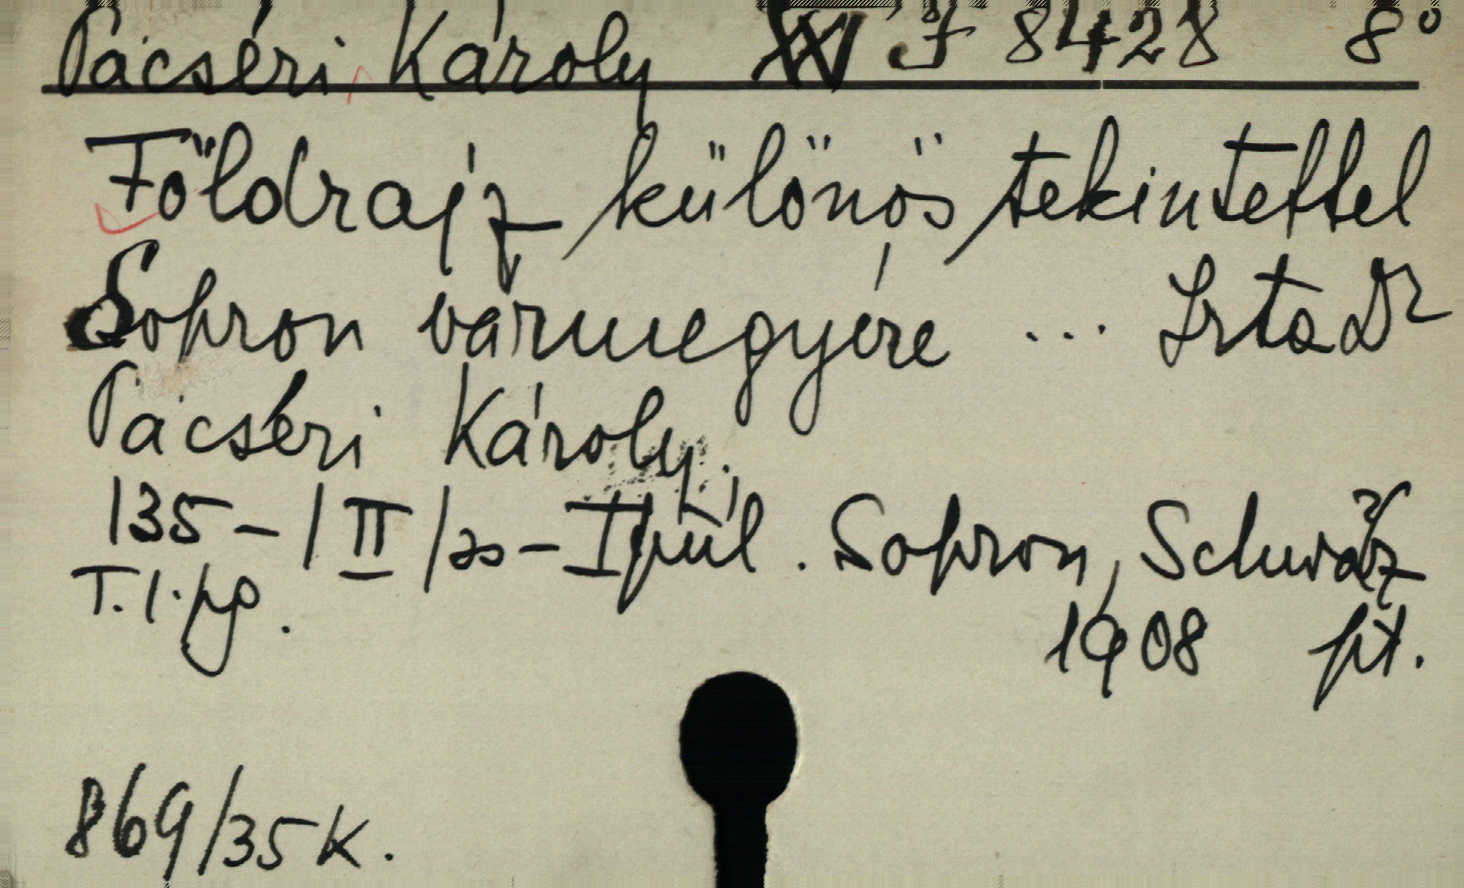 Pácséri Károly XXI J 8428 8°
Földrajz különös tekintettel
Sopron vármegyére ... Irta Dr
Pácséri Károly.
135-/II/ - I Sopron,
T. l. pg.
1908
869/35 K.